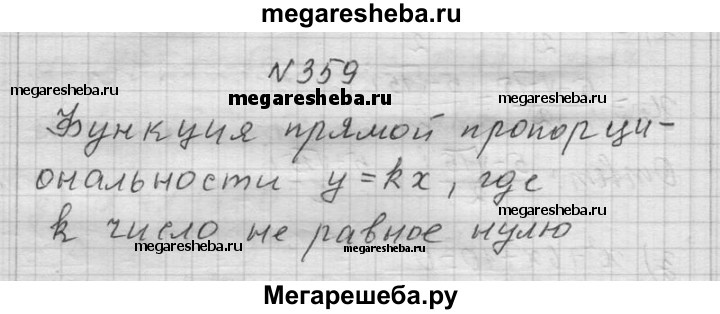 megaresheba.ru
N 359
megaresheba.ru
megaresheba.ru
megaresheba.ru
Функция прямой пропорци-
ональности y = kx, где
megaresheba.ru
k число не равное нулю
megaresheba.ru
Мегарешеба.ру